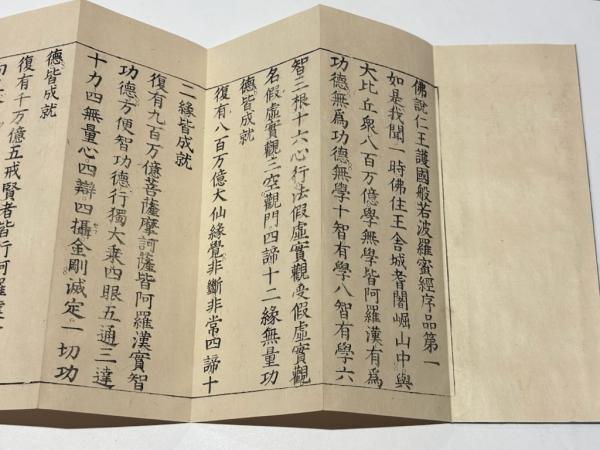 佛說仁王護國般若波羅蜜經序品第一
如是我聞一時佛住王舍城耆闍崛山中與
大比丘衆八百万億學無學皆阿羅漢有爲
功德無爲功德無學十智有學八智有學六
智三根十六心行法假虛實觀受假虛實觀
名假虛實觀三空觀門四諦十二緣無量功
德皆成就
復有八百万億大仙緣覺非斷非常四諦十
二緣皆成就
復有九百万億菩薩摩訶薩皆阿羅漢實智
功德方便智功德行獨大乘四眼五通三達
十力四無量心四辯四攝金剛滅定一切功
德皆成就
復有千万億五戒賢者皆行阿羅漢